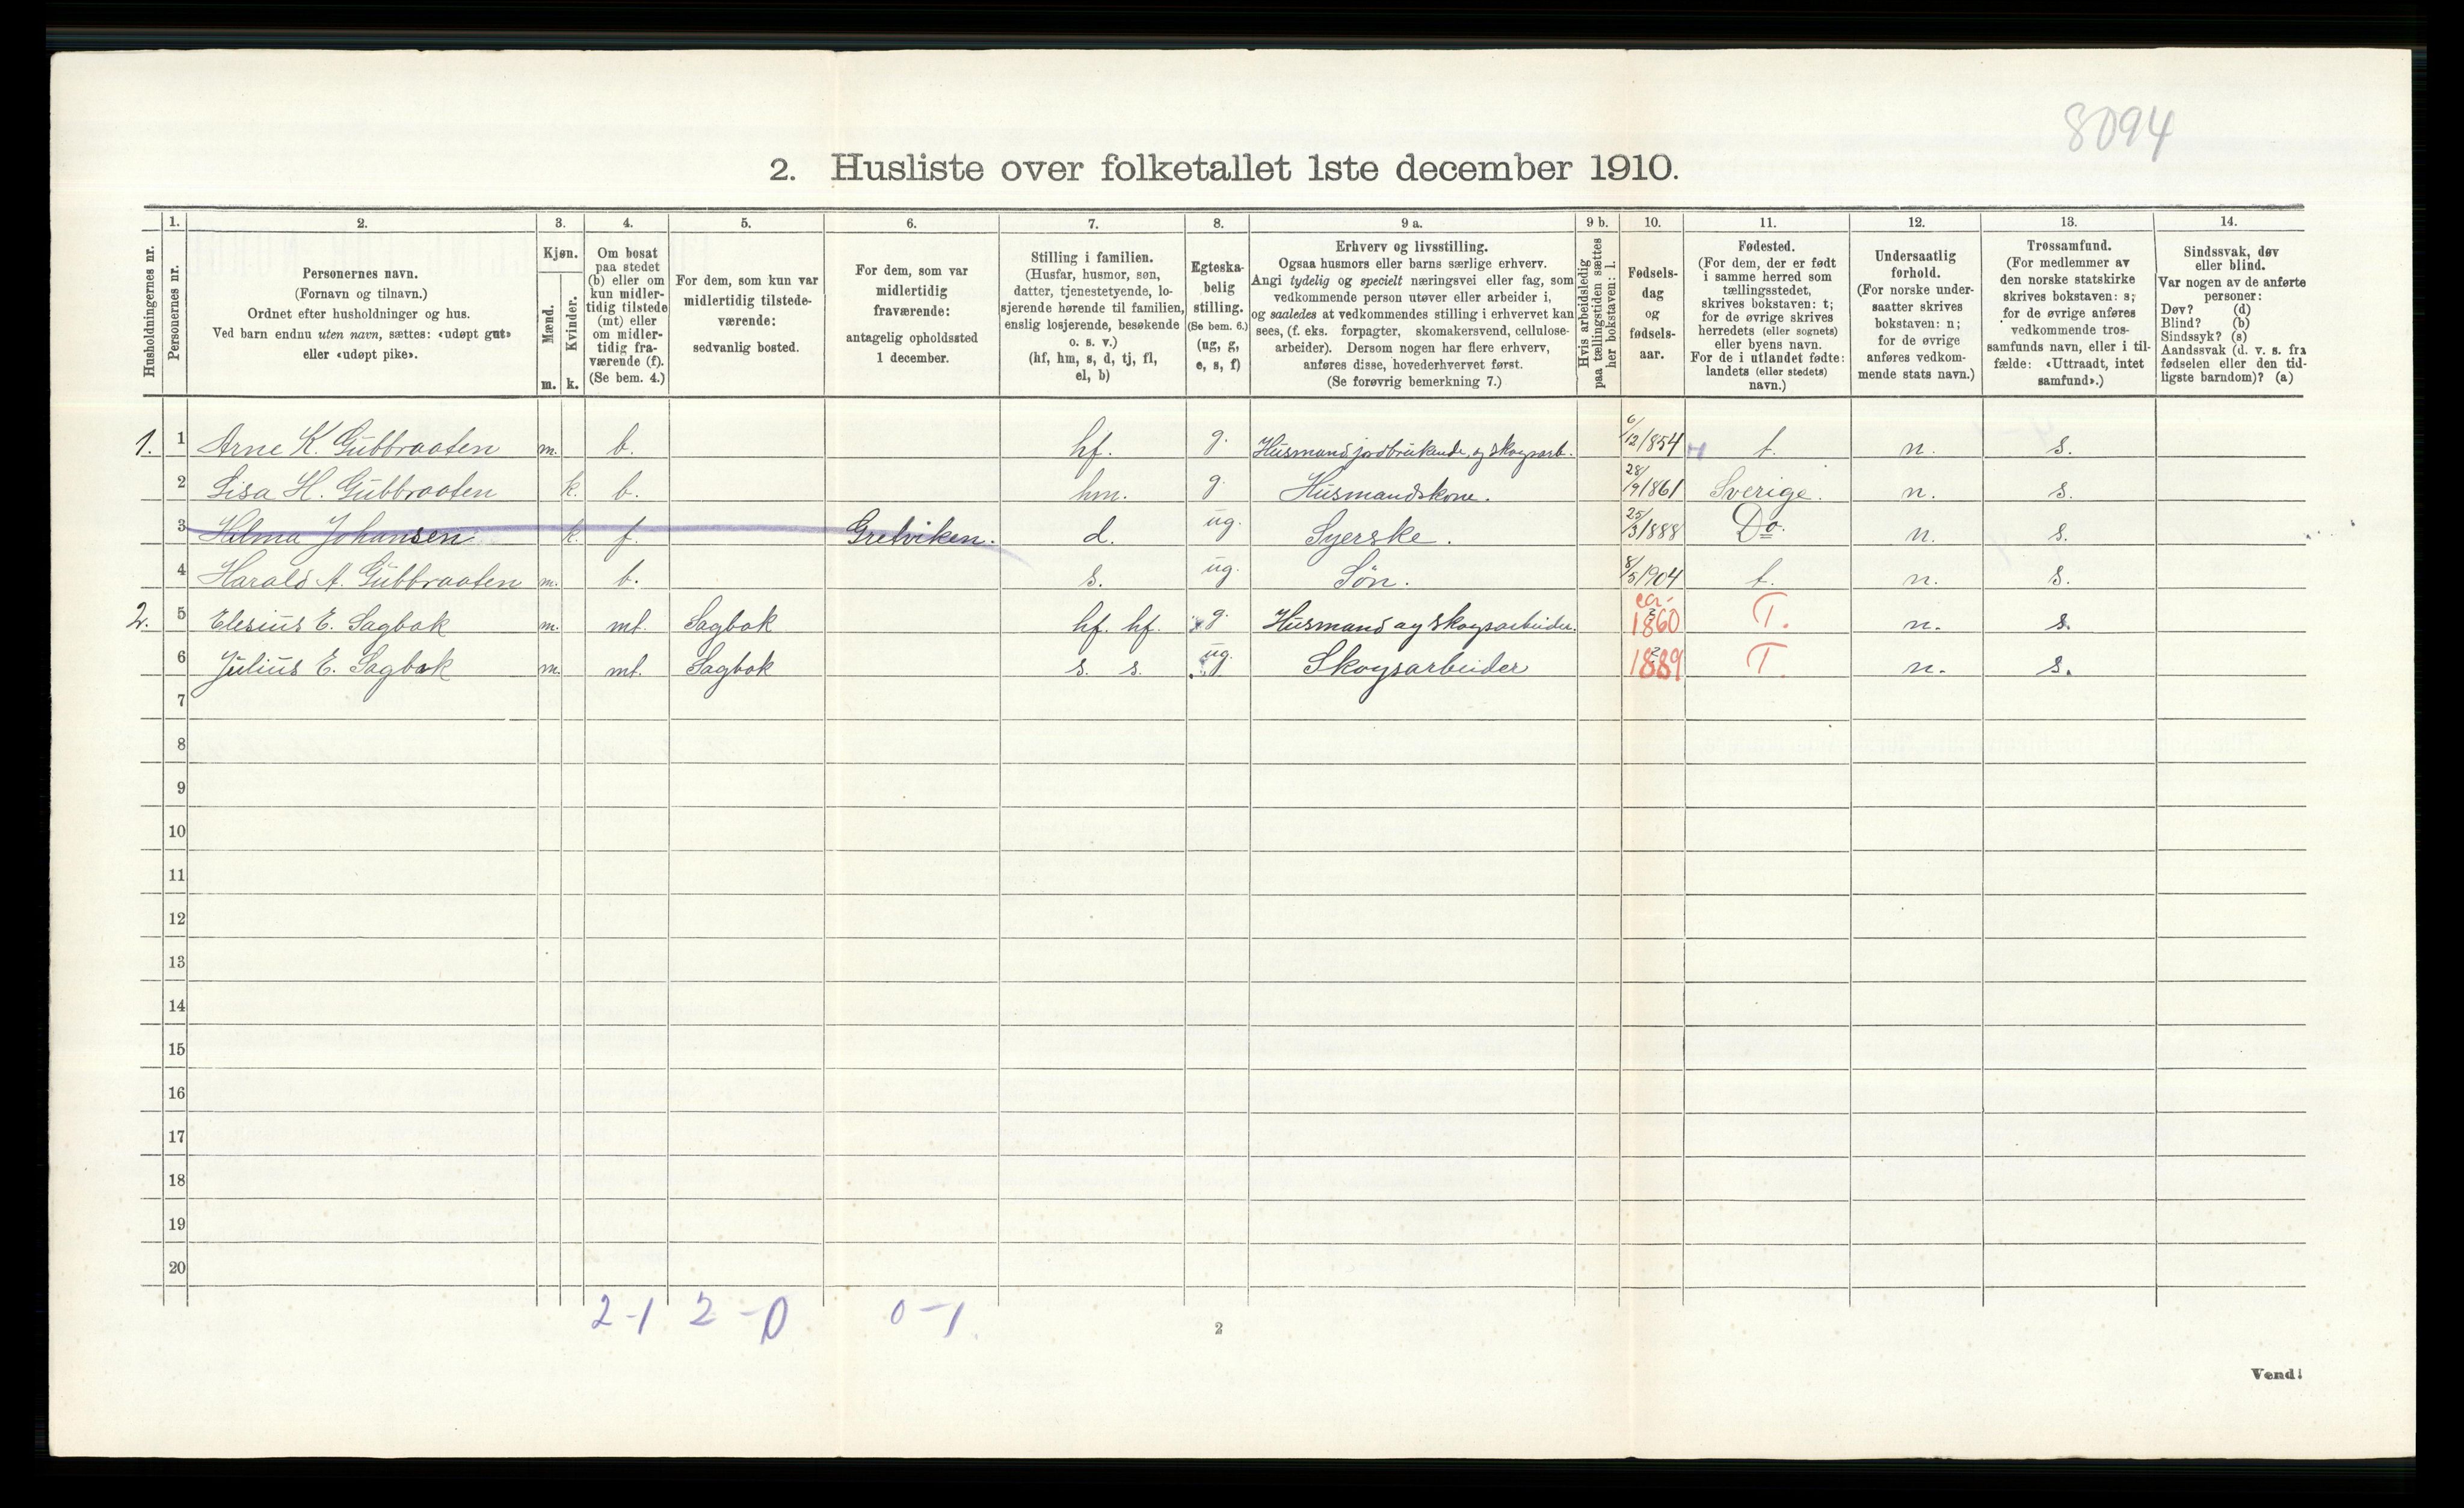 8094
2. Husliste over folketallet 1ste december 1910.
Husholdningernes nr.
1.
Personernes nr.
2.
Personernes navn.
(Fornavn og tilnavn.)
Ordnet efter husholdninger og hus.
Ved barn endnu uten navn, sættes: «udøpt gut»
eller «udøpt pike».
3.
Kjøn.
Mænd.
Kvinder.
m.
k.
4.
Om bosat
paa stedet
(b) eller om
kun midler-
tidig tilstede
(mt) eller
om midler-
tidig fra-
værende (f).
(Se bem. 4.)
5.
For dem, som kun var
midlertidig tilstede-
værende:
sedvanlig bosted.
6.
For dem, som var
midlertidig
fraværende:
antagelig opholdssted
1 december.
7.
Stilling i familien.
(Husfar, husmor, søn,
datter, tjenestetyende, lo-
sjerende hørende til familien,
enslig losjerende, besøkende
o. s. v.)
(hf, hm, s, d, tj, fl,
el, b)
8.
Egteska-
belig
stilling.
(Se bem. 6.)
(ug, g,
e, s, f)
9 a.
Erhverv og livsstilling.
Ogsaa husmors eller barns særlige erhverv.
Angi tydelig og specielt næringsvei eller fag, som
vedkommende person utøver eller arbeider i,
og saaledes at vedkommendes stilling i erhvervet kan
sees, (f. eks. forpagter, skomakersvend, cellulose-
arbeider). Dersom nogen har flere erhverv,
anføres disse, hovederhvervet først.
(Se forøvrig bemerkning 7.)
9 b.
Hvis arbeidsledig
paa tællingstiden sættes
her bokstaven: l.
10.
Fødsels-
dag
og
fødsels-
aar.
11.
Fødested.
(For dem, der er født
i samme herred som
tællingsstedet,
skrives bokstaven: t;
for de øvrige skrives
herredets (eller sognets)
eller byens navn.
For de i utlandet fødte:
landets (eller stedets)
navn.)
12.
Undersaatlig
forhold.
(For norske under-
saatter skrives
bokstaven: n;
for de øvrige
anføres vedkom-
mende stats navn.)
13.
Trossamfund.
(For medlemmer av
den norske statskirke
skrives bokstaven: s;
for de øvrige anføres
vedkommende tros-
samfunds navn, eller i til-
fælde: «Uttraadt, intet
samfund».)
14.
Sindssvak, døv
eller blind.
Var nogen av de anførte
personer:
Døv? (d)
Blind? (b)
Sindssyk? (s)
Aandssvak (d. v. s. fra
fødselen eller den tid-
ligste barndom)? (a)
1. 1 Arne K. Gubbraaten m. b. hf. g. Husmand jordbrukende og skogsarb. 6/12 1854 t. n. s.
2 Lisa H. Gubbraaten k. b. hm. g. Husmandskone. 28/9 1861 Sverige. n. s.
3 Hilma Johansen k. f. Gretviken. d. ug. Syerske. 25/3 1888 Do. n. s.
4 Harald A. Gubbraaten m. b. s. ug. Søn. 8/5 1904 t. n. s.
2. 5 Elesius E. Sagbak m. mt. Sagbak hf. hf. g. Husmand og skogsarbeider. ca. 1860 T. n. s.
6 Julius E. Sagbak m. mt. Sagbak s. s. ug. Skogsarbeider 1889 T. n. s.
7
8
9
10
11
12
13
14
15
16
17
18
19
20
2-1 2-0 0-1
2
Vend!